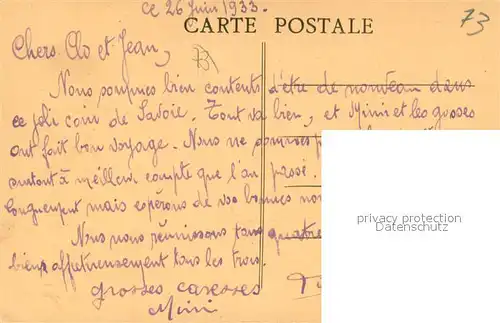 ce 26 Juin 1933.
CARTE POSTALE
73
Chers Clo et Jean,
73
Nous sommes bien contents d'être de nouveau dans
ce joli coin de Savoie. Tout va bien, et Mimi et les gosses
ont fait bon voyage. Nous ne sommes
surtout à meilleur compte que l'an passé.
longuement mais espérons de vos bonnes
Nous nous réunissons tous quatre
bien affectueusement tous les trois.
grosses caresses
Mimi
privacy protection
Datenschutz